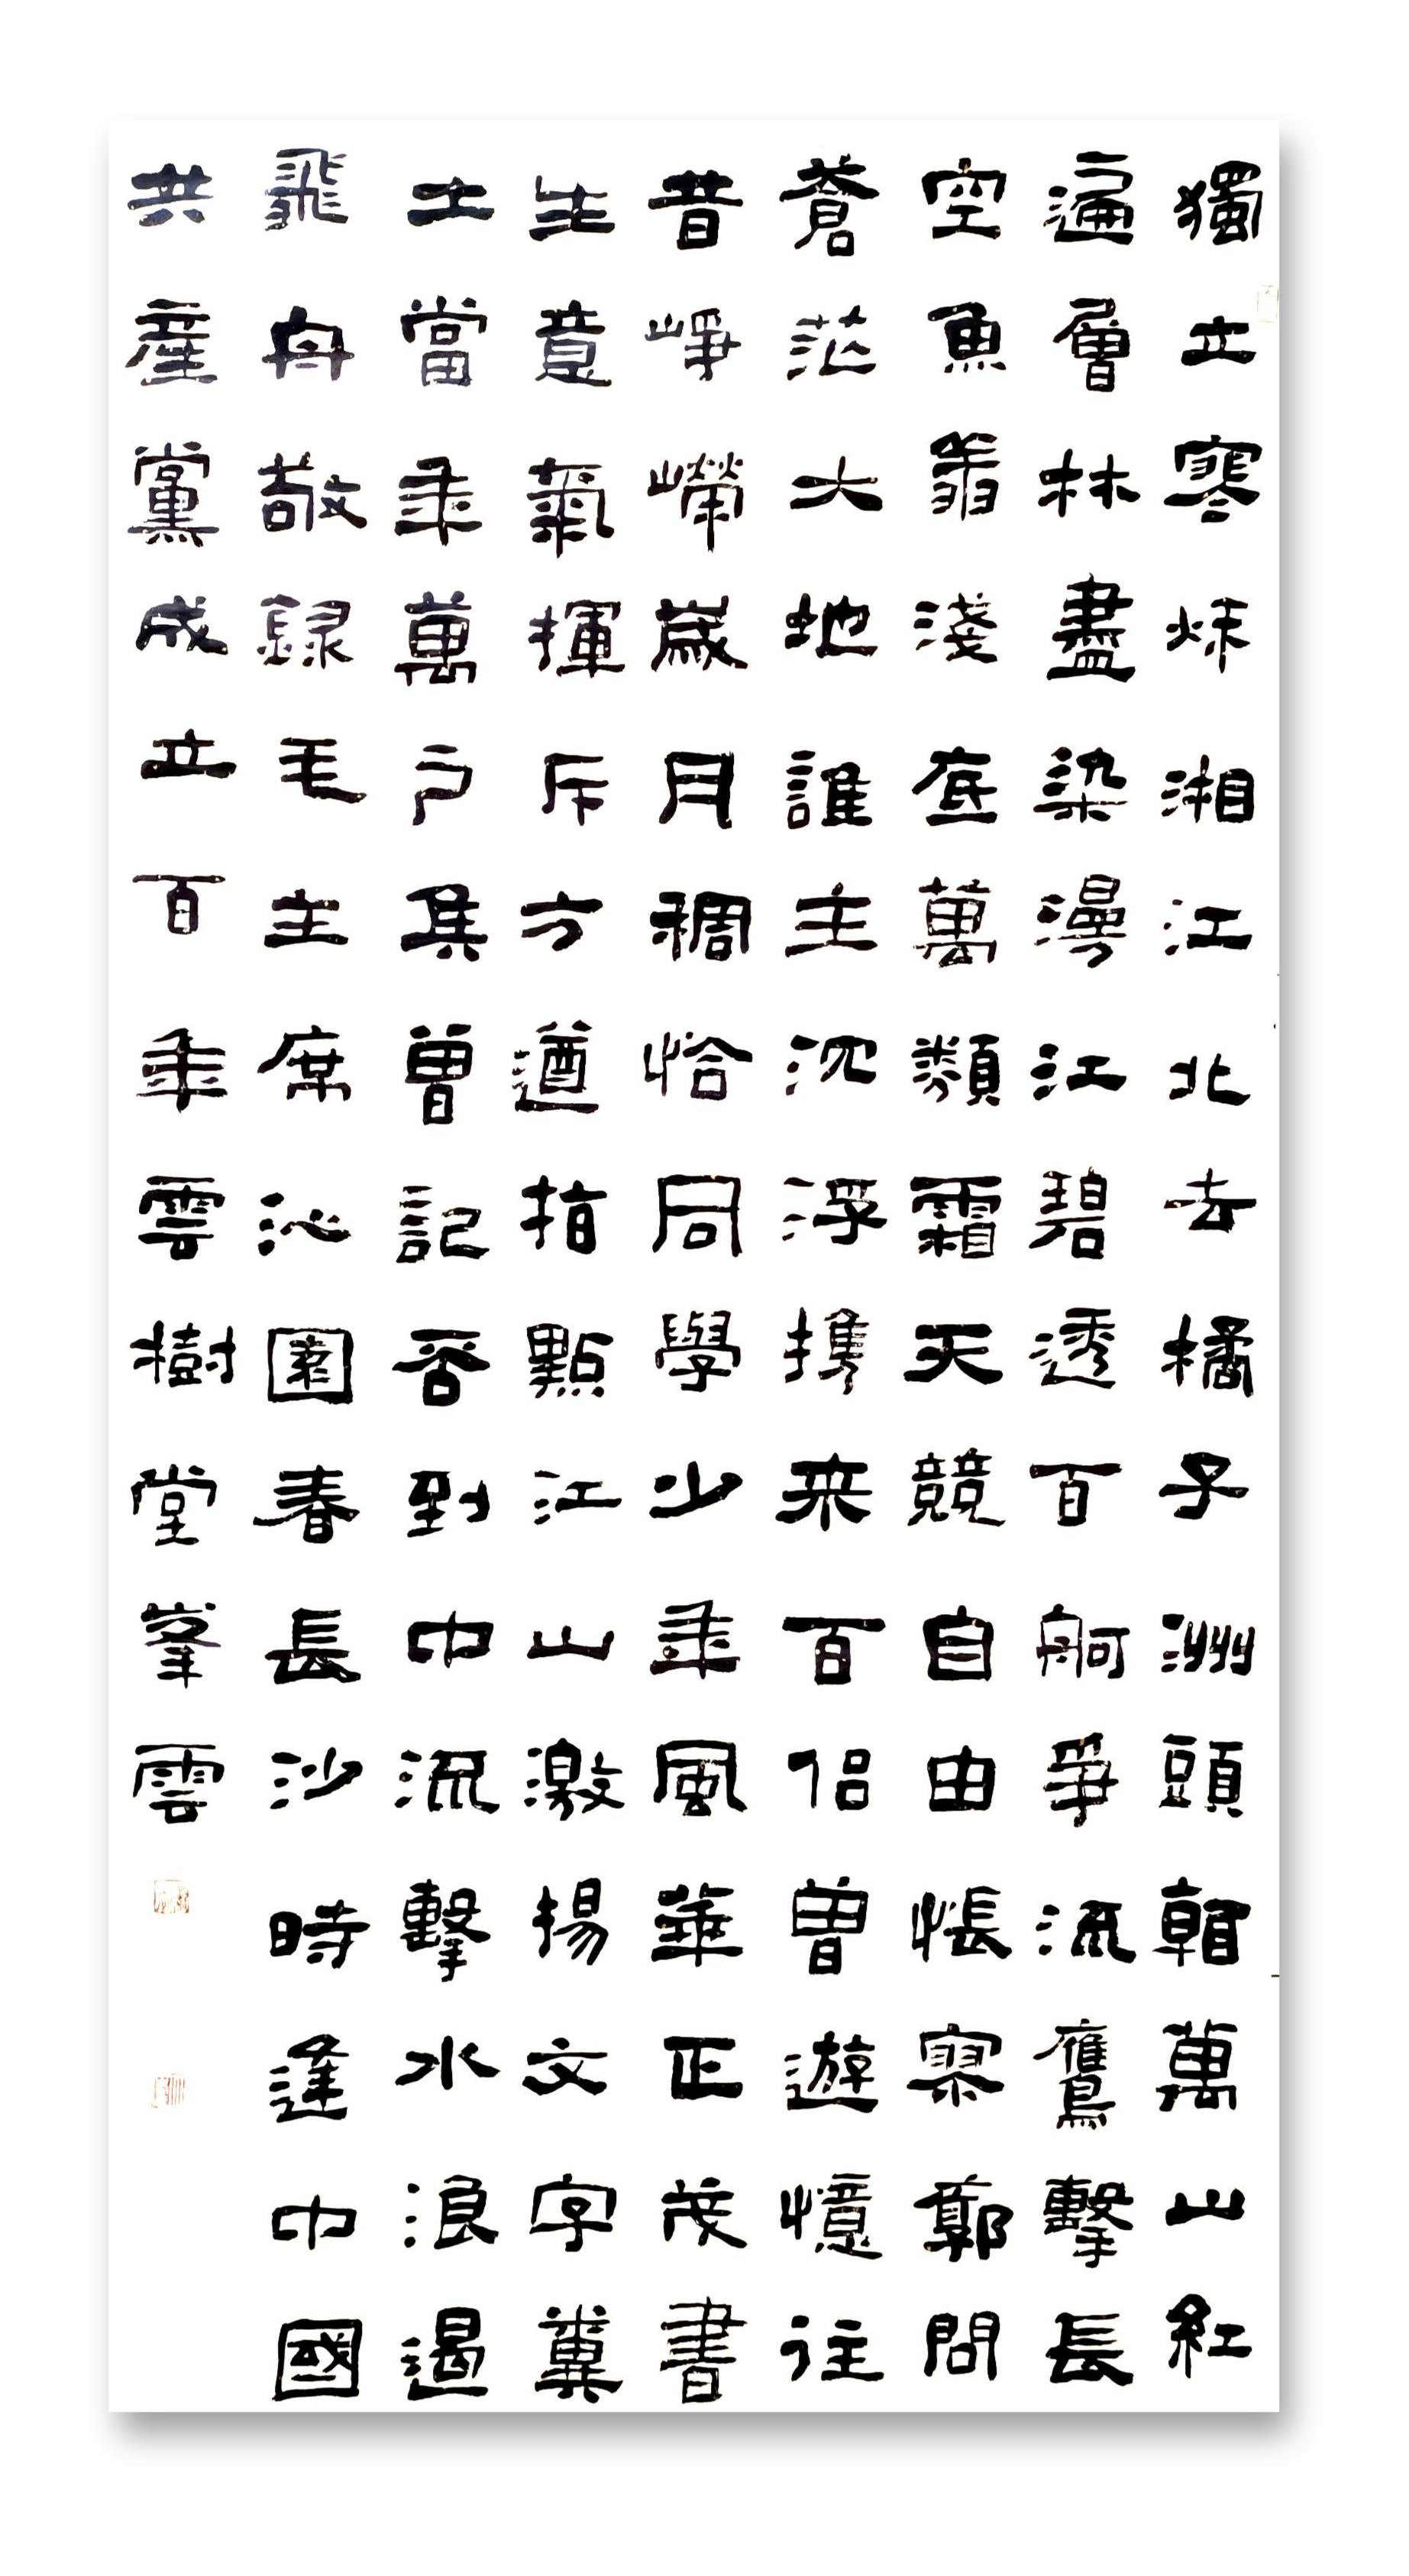 獨立寒秌湘江北去橘子洲頭看萬山紅
遍層林盡染漫江碧透百舸爭流鷹擊長
空魚翔淺底萬類霜天競自由悵寥廓問
蒼茫大地誰主沈浮携来百侣曾遊憶往
昔崢嶸歲月稠恰同學少年風華正茂書
生意氣揮斥方遒指點江山激揚文字糞
土當年萬户侯曾記否到中流擊水浪遏
飛舟敬録毛主席沁園春長沙時逢中國
共產黨成立百年雲樹堂峯雲